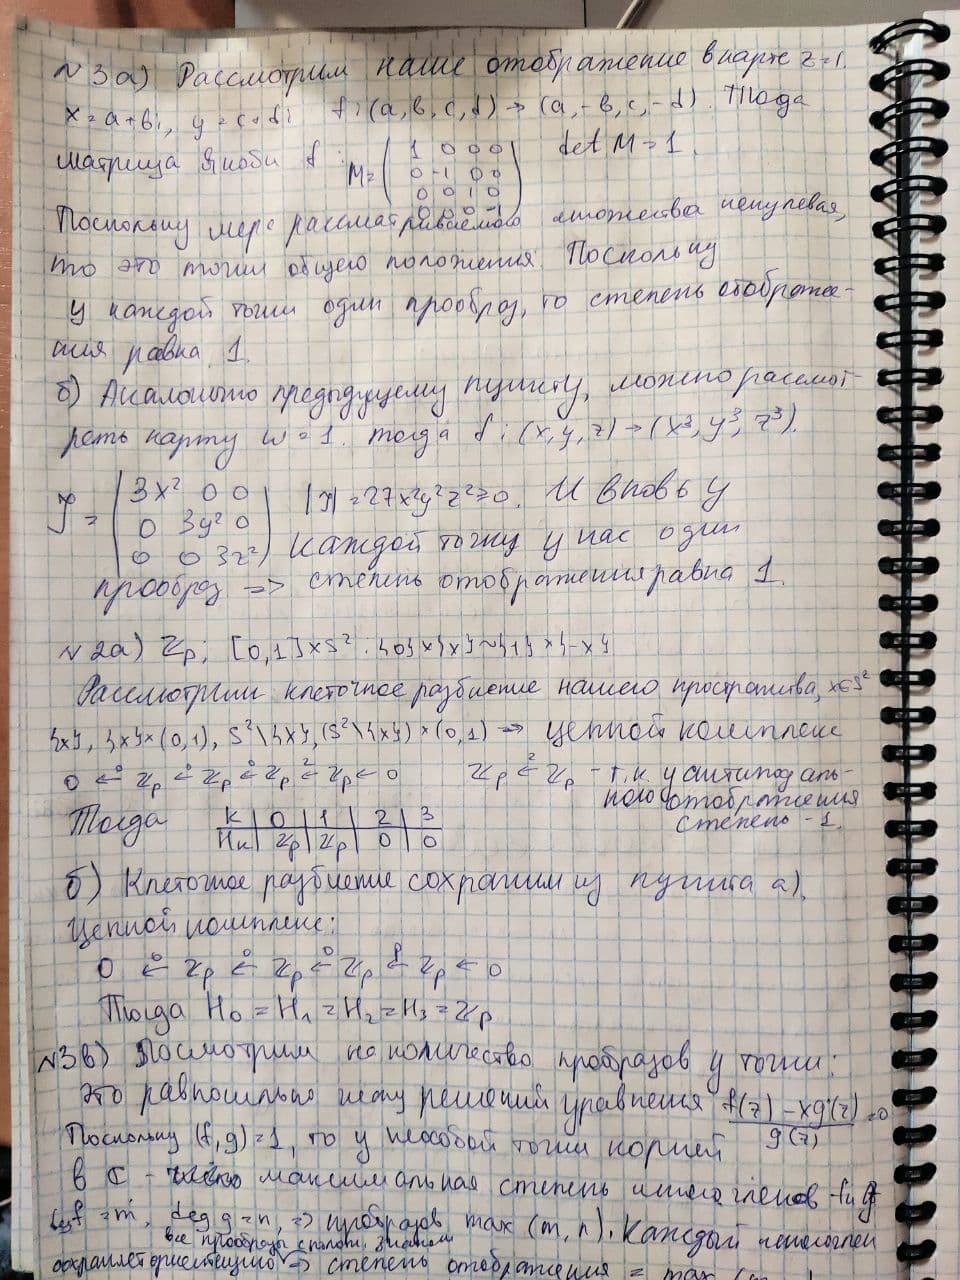 № 3 а) Рассмотрим наше отображение в карте z=1.
x=a+bi, y=c+di f:(a,b,c,d)→(a,-b,c,-d). Тогда
матрица Якоби f: M=(1 0 0 0 / 0 -1 0 0 / 0 0 1 0 / 0 0 0 -1) det M=1.
Поскольку мера рассматриваемого множества ненулевая,
то это точки общего положения. Поскольку
у каждой точки один прообраз, то степень отображе-
ния равна 1.
б) Аналогично предыдущему пункту, можно рассмот-
реть карту w=1. тогда f:(x,y,z)→(x³,y³,z³).
J=(3x² 0 0 / 0 3y² 0 / 0 0 3z²) |J|=27x²y²z²≥0. И вновь у
каждой точки у нас один
прообраз => степень отображения равна 1.
№ 2а) ℤp; [0,1]×S²: {0}×{x}~{1}×{-x}
Рассмотрим клеточное разбиение нашего пространства, x∈S²
{x}, {x}×(0,1), S²\{x}, (S²\{x})×(0,1) => цепной комплекс
0 ←⁰ ℤp ←⁰ ℤp ←⁰ ℤp ←² ℤp ← 0 ℤp ←² ℤp - т.к. у антиподаль-
ного отображения
степень -1.
Тогда k | 0 | 1 | 2 | 3
Hk | ℤp | ℤp | 0 | 0
б) Клеточное разбиение сохраним из пункта а).
Цепной комплекс:
0 ←⁰ ℤp ←⁰ ℤp ←⁰ ℤp ← ℤp ← 0
Тогда H₀=H₁=H₂=H₃=ℤp
№3в) Посмотрим на количество прообразов у точки:
это равносильно числу решений уравнения (f(z)-xg(z))/g(z)=0
Поскольку (f,g)=1, то у неособой точки корней
в ℂ - максимальная степень многочленов f и g
deg f=m, deg g=n, => прообразов max(m,n). Каждый многочлен
все прообразы с полож. знаком
сохраняет ориентацию => степень отображения = max